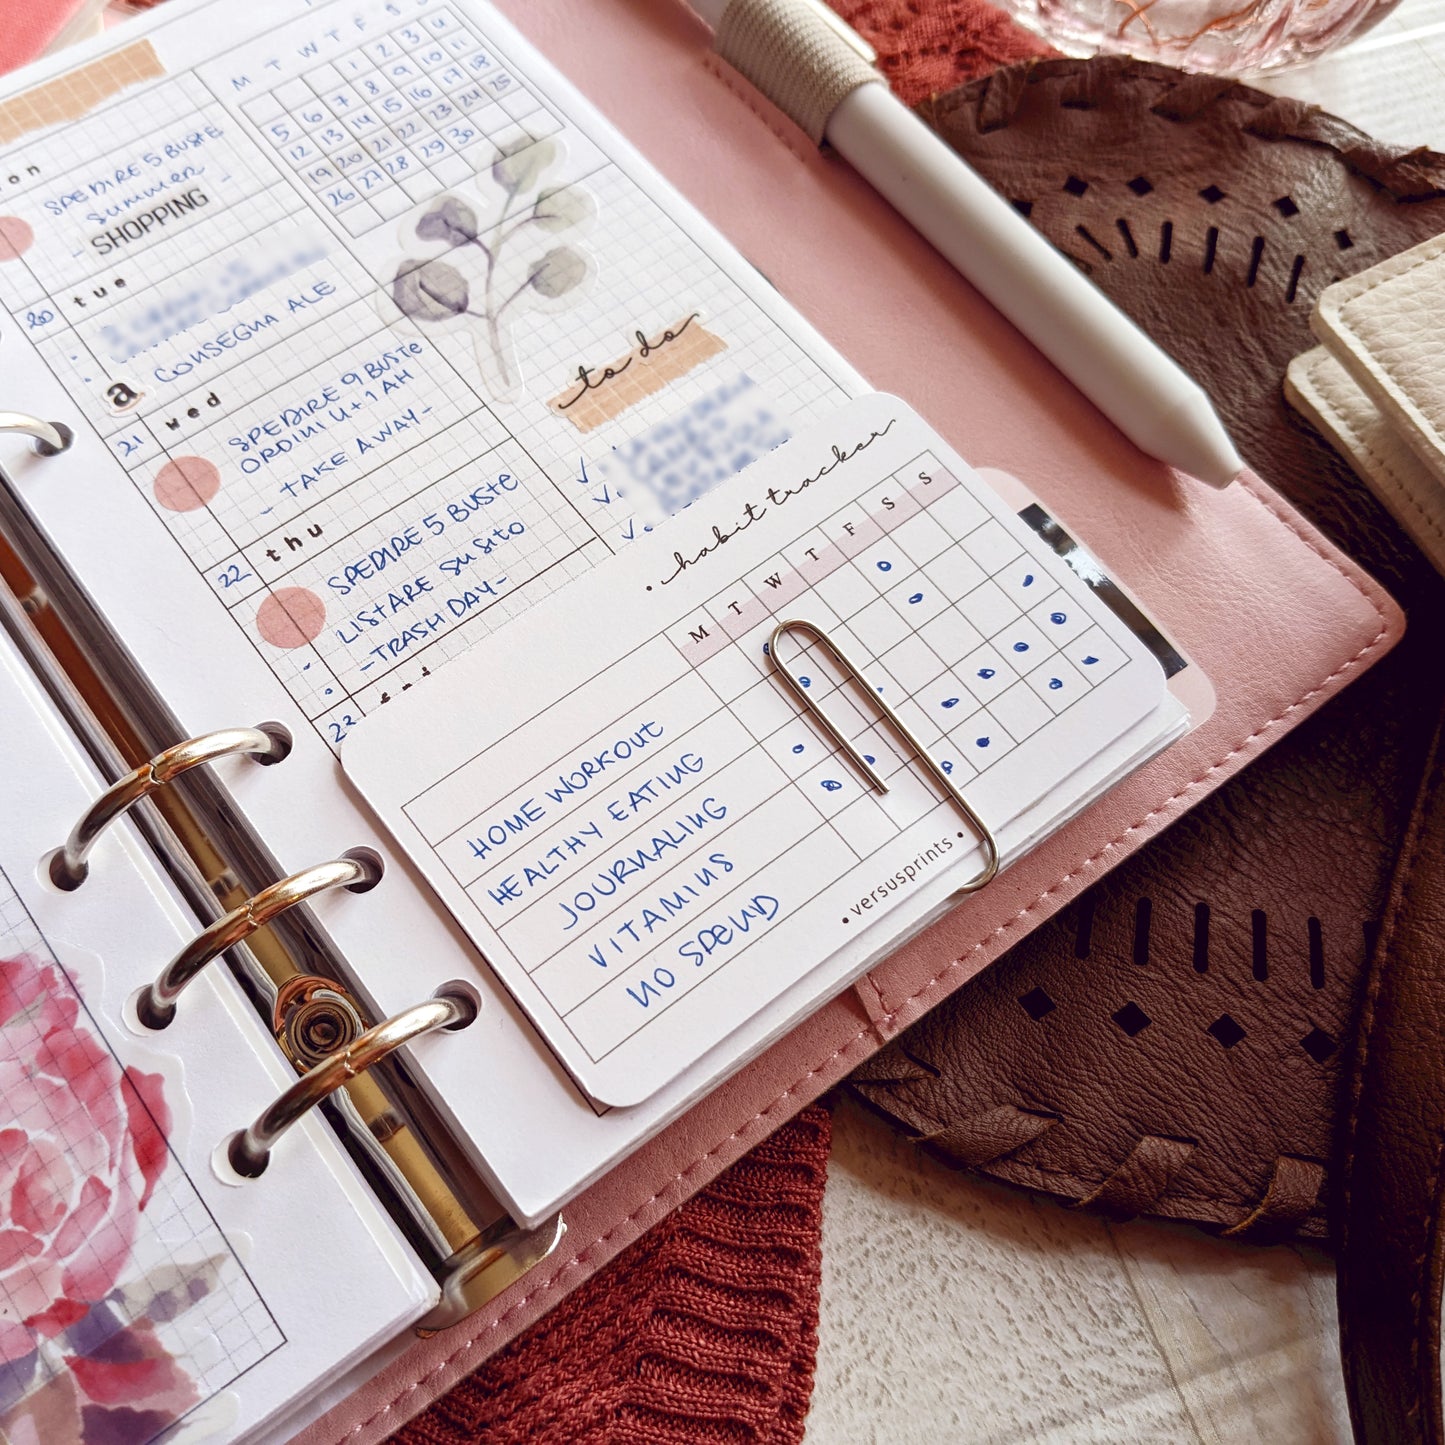 M T W T F S S
1 2 3 4
5 6 7 8 9 10 11
12 13 14 15 16 17 18
19 20 21 22 23 24 25
26 27 28 29 30
on
SPEDIRE 5 BUSTE
- Summer -
SHOPPING
20
tue
CONSEGNA ALE
a
21
wed
SPEDIRE 9 BUSTE
ORDINI U+1 AH
- TAKE AWAY -
22
thu
SPEDIRE 5 BUSTE
LISTARE SU SITO
- TRASH DAY -
23
to do
• habit tracker
M T W T F S S
HOME WORKOUT
HEALTHY EATING
JOURNALING
VITAMINS
NO SPEND
• versusprints •